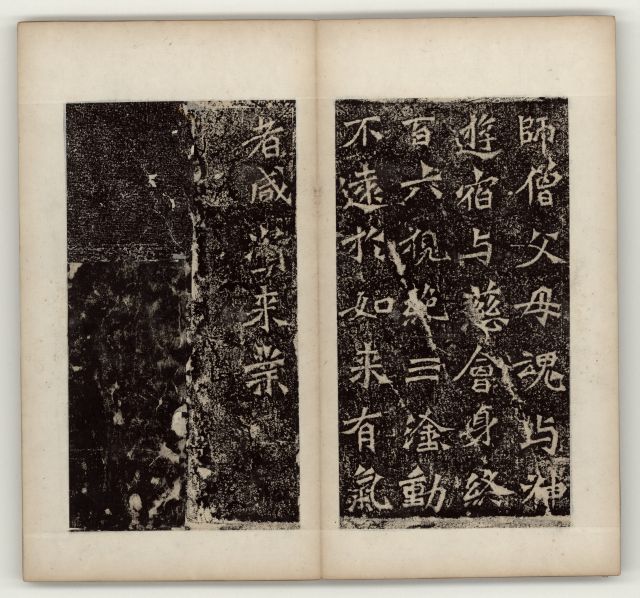 師僧父母魂与神
遊宿与慈會身終
百六視絶三塗動
不遠於如来有氣
者咸来業